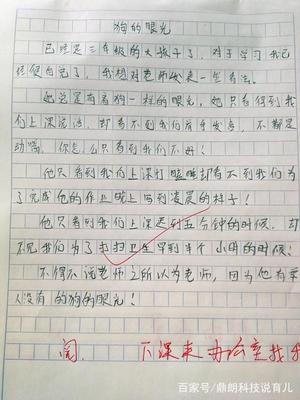 狗的眼光
已经是三年级的大孩子了，对于学习我已
经很自觉了，我想对老师发表一些看法。
她总是有着狗一样的眼光，她只看得到我
们上课说话，却看不到我们举手发言，不都是
动嘴，你怎么只看到我们不好！
他只看到我们上课打瞌睡却看不到我们为
了完成他的作业晚上写到凌晨的样子！
他只看到我们上课迟到五分钟的时候，却
不见我们为了打扫卫生早到半个小时的时候！
不得不说老师之所以为老师，因为他有常
人没有的狗的眼光！
阅. 下课来办公室找我
百家号/鼎朗科技说育儿